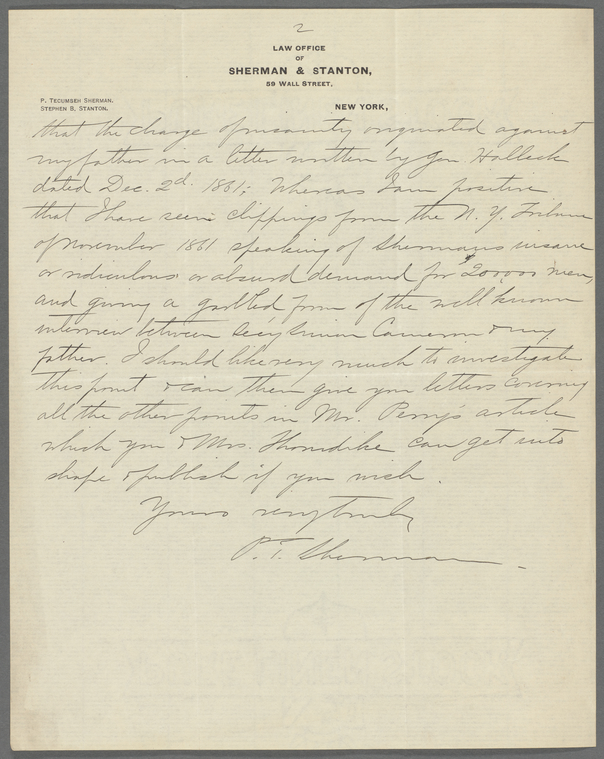 2
LAW OFFICE
OF
SHERMAN & STANTON,
59 WALL STREET,
P. TECUMSEH SHERMAN.
STEPHEN B. STANTON.
NEW YORK,
that the charge of insanity originated against
my father in a letter written by Gen Halleck
dated Dec. 2d. 1861; Whereas I am positive
that I have seen clippings from the N. Y. Tribune
of November 1861 speaking of Sherman's insane
or ridiculous or absurd demand for 200,000 men,
and giving a garbled form of the well known
interview between Secy Simon Cameron & my
father. I should like very much to investigate
this point & can then give you letters covering
all the other points in Mr. Perry's article
which you & Mrs. Thorndike can get into
shape & publish if you wish.
Yours very truly
P. T. Sherman